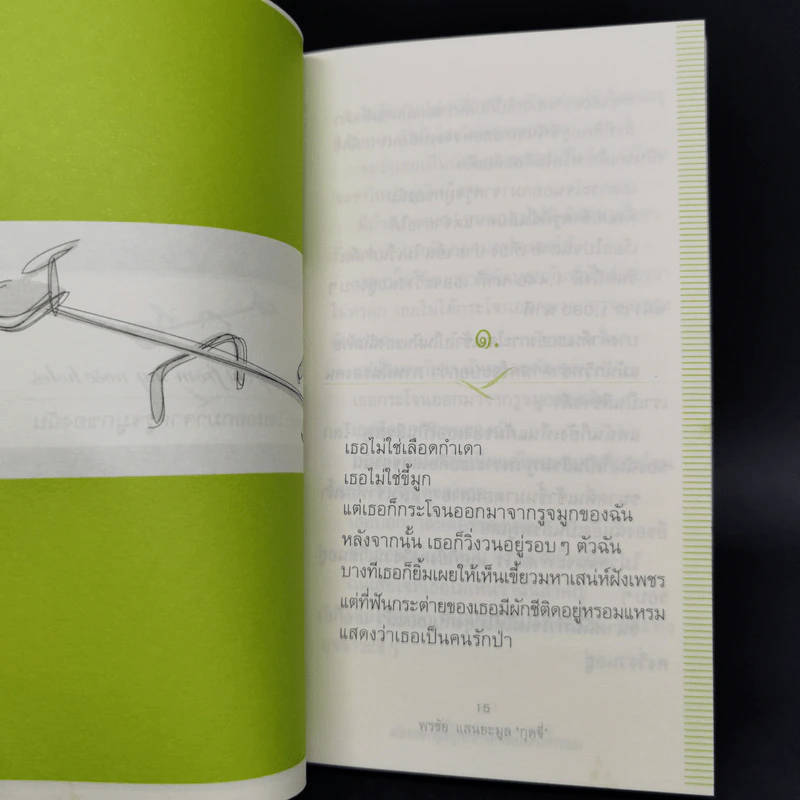 ๑.
เธอไม่ใช่เลือดกำเดา
เธอไม่ใช่ขี้มูก
แต่เธอก็กระโจนออกมาจากรูจมูกของฉัน
หลังจากนั้น เธอก็วิ่งวนอยู่รอบๆ ตัวฉัน
บางทีเธอก็ยิ้มเผยให้เห็นเขี้ยวมหาเสน่ห์ฝังเพชร
แต่ที่ฟันกระต่ายของเธอมีผักชีติดอยู่หรอมแหรม
แสดงว่าเธอเป็นคนรักป่า
15
พรชัย แสนยะมูล 'กุดจี่'